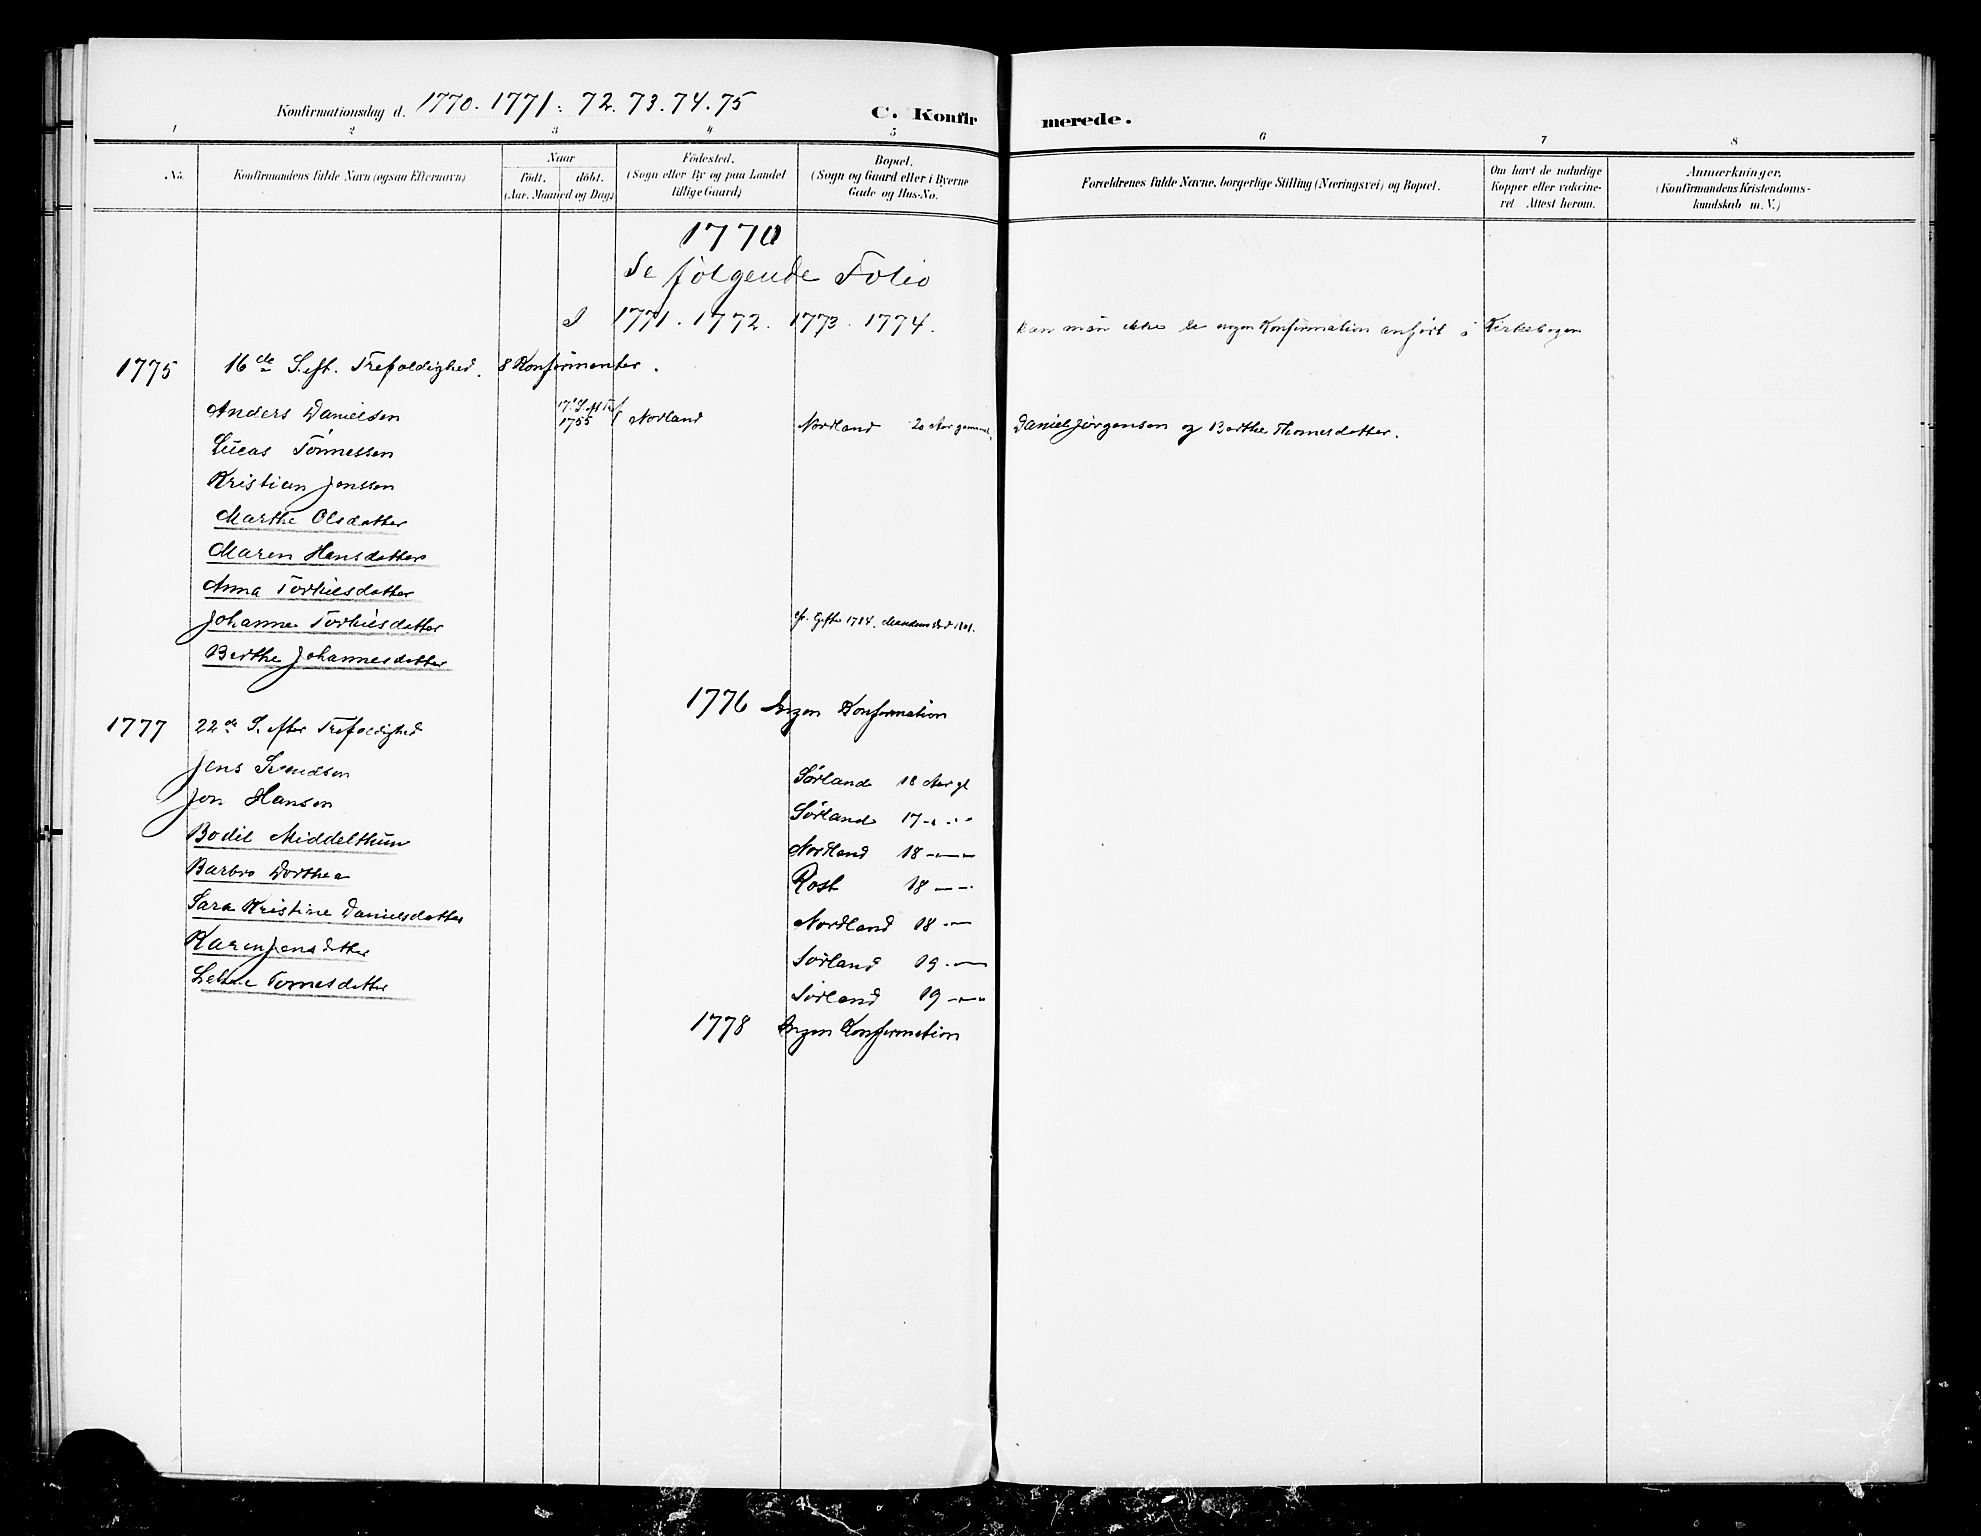 Konfirmationsdag d. 1770. 1771. 72. 73. 74. 75
C. Konfirmerede.
1 2 3 4 5 6 7 8
No.
Konfirmandens fulde Navn (ogsaa Efternavn)
Naar
født. døbt.
(Aar, Maaned og Dag)
Fødested.
(Sogn eller By og paa Landet
tillige Gaard)
Bopæl.
(Sogn og Gaard eller i Byerne
Gade og Hus-No.
Forældrenes fulde Navne, borgerlige Stilling (Næringsvei) og Bopæl.
Om havt de naturlige
Kopper eller vakcine-
ret Attest herom.
Anmærkninger.
(Konfirmandens Kristendoms-
kundskab m. V.)
1770
Se følgende Folio
I 1771. 1772. 1773. 1774. kan man ikke se nogen Konfirmation anført i Kirkebogen
1775 16de S. eft. Trefoldighed. 8 Konfirmanter.
Anders Danielsen 17. S. eft Tref 1755 Nordland Nordland 20 Aar gammel. Daniel Jørgensen og Berthe Thomesdatter.
Lucas Tönnessen
Kristian Jenssen
Marthe Olsdatter
Maren Hansdatter
Anna Torkilsdatter
Johanne Torkilsdatter cfr. Gift 1784. Manden
Berthe Johannesdatter
1776 Ingen Konfirmation
1777 22de S. efter Trefoldighed
Jens Svendsen Sørland 18 Aar gl
Jon Hansen Sørland 17 - . -
Bodil Middelthun Nordland 18 -
Barbro Dorthea Rost 18 - -
Sara Kristine Danielsdatter Nordland 18 -
Karen Jensdatter Sörland 19 . -
Tomesdatter Sörland 19 -
1778 Ingen Konfirmation